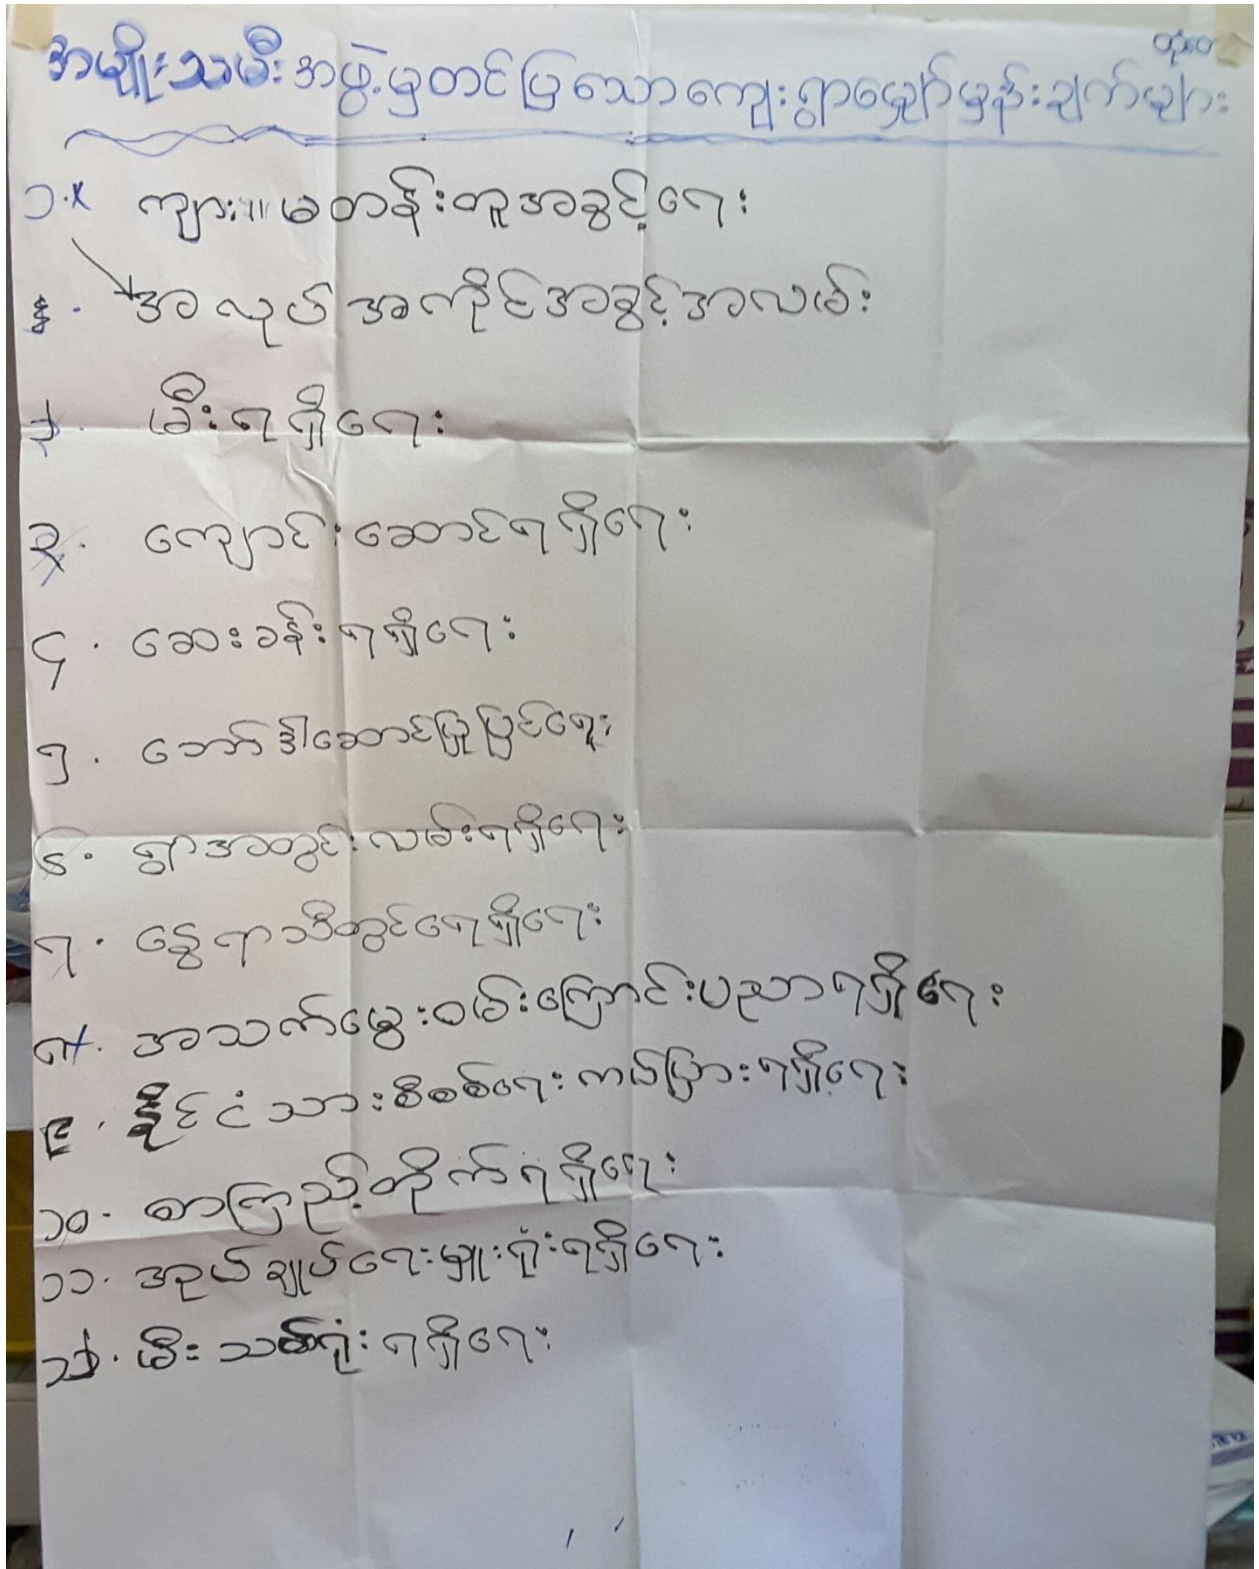 အမျိုးသမီးအဖွဲ့မှတင်ပြသောကျေးရွာမျှော်မှန်းချက်များ
၁. ကျား၊မတန်းတူအခွင့်ရေး
အလုပ်အကိုင်အခွင့်အလမ်း
မီးရရှိရေး
၃. ကျောင်းဆောင်ရရှိရေး
၄. ဆေးခန်းရရှိရေး
၅. ဘော်ဒါဆောင်ပြုပြင်ရေး
၆. ရွာအတွင်းလမ်းရရှိရေး
၇. နွေရာသီတွင်ရေရရှိရေး
၈. အသက်မွေးဝမ်းကြောင်းပညာရရှိရေး
၉. နိုင်ငံသားစိစစ်ရေးကဒ်ပြားရရှိရေး
၁၀. စာကြည့်တိုက်ရရှိရေး
၁၁. အုပ်ချုပ်ရေးမှူးရုံးရရှိရေး
၁၂. မီးသတ်ရုံးရရှိရေး